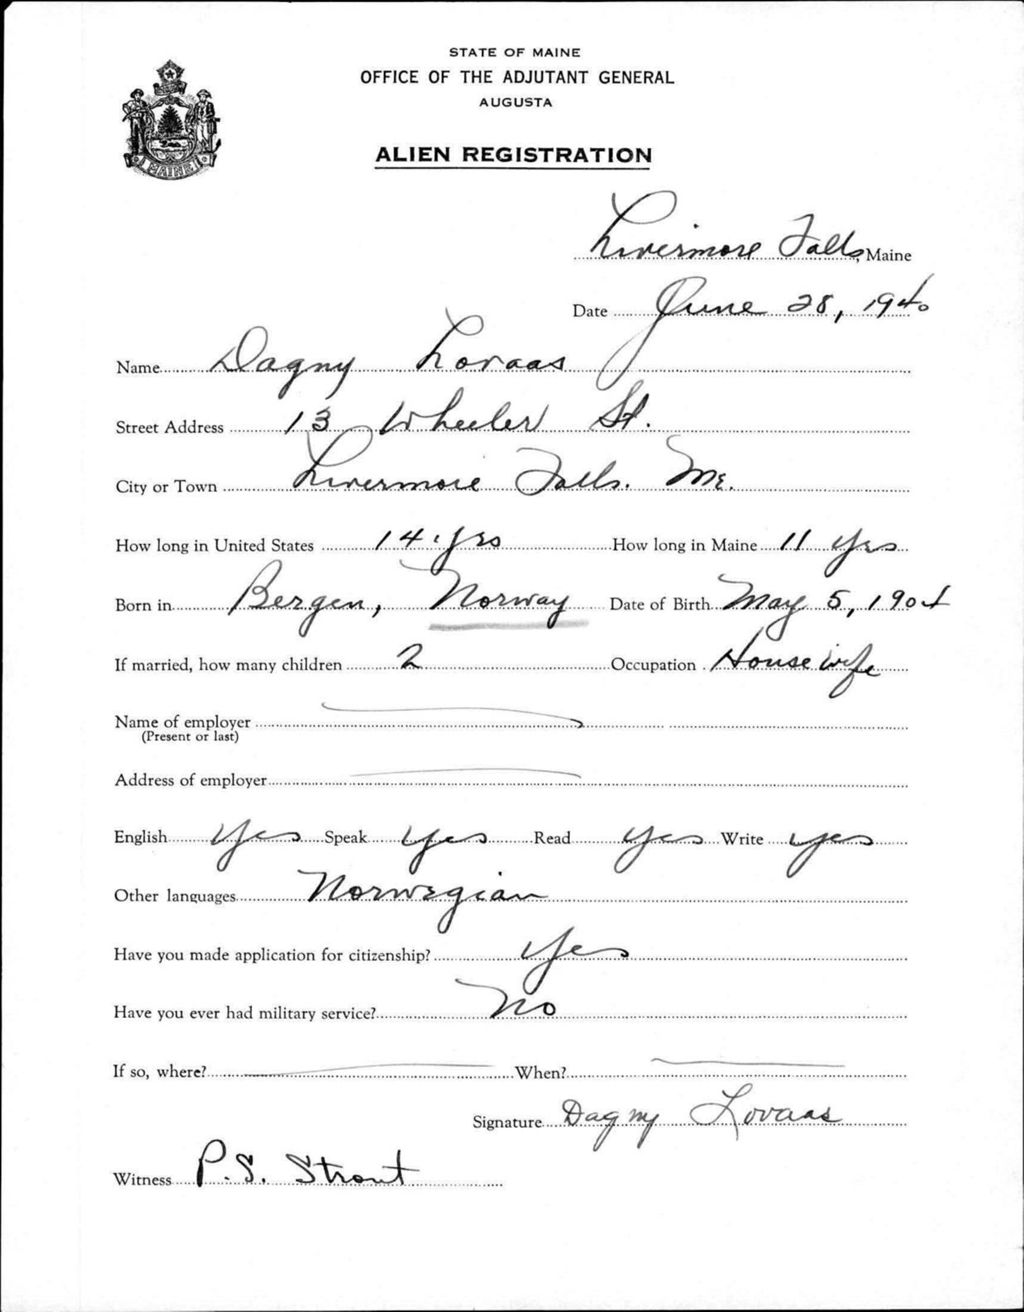 STATE OF MAINE
OFFICE OF THE ADJUTANT GENERAL
AUGUSTA
ALIEN REGISTRATION
MAINE
Livermore Falls, Maine
Date June 28, 1940
Name Dagny Lovaas
Street Address 13 Wheeler St.
City or Town Livermore Falls. Me.
How long in United States 14 yrs How long in Maine 11 yrs
Born in Bergen, Norway Date of Birth May 5, 1904
If married, how many children 2 Occupation Housewife
Name of employer
(Present or last)
Address of employer
English Yes Speak yes Read yes Write yes
Other languages Norwegian
Have you made application for citizenship? Yes
Have you ever had military service? No
If so, where? When?
Signature Dagny Lovaas
Witness P.S. Strout